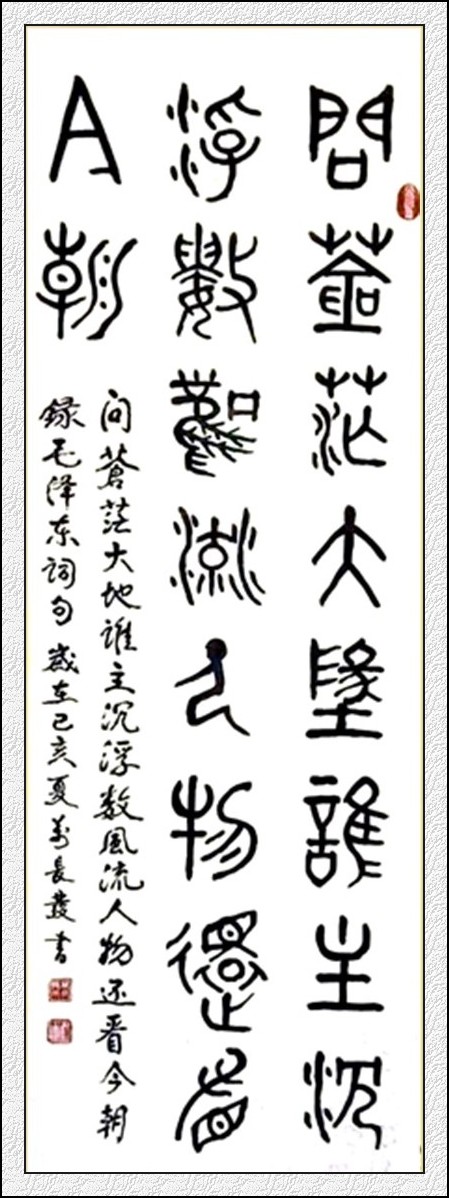 問蒼茫大地誰主沉
浮數風流人物還看
今朝
问蒼茫大地谁主沉浮数風流人物还看今朝
録毛泽东词句 歲在己亥夏萬長發书